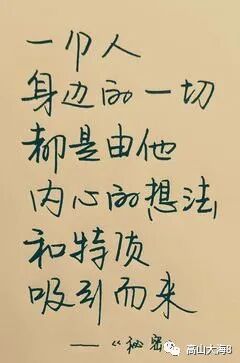 一个人
身边的一切
都是由他
内心的想法
和特质
吸引而来
——《秘密
高山大海8